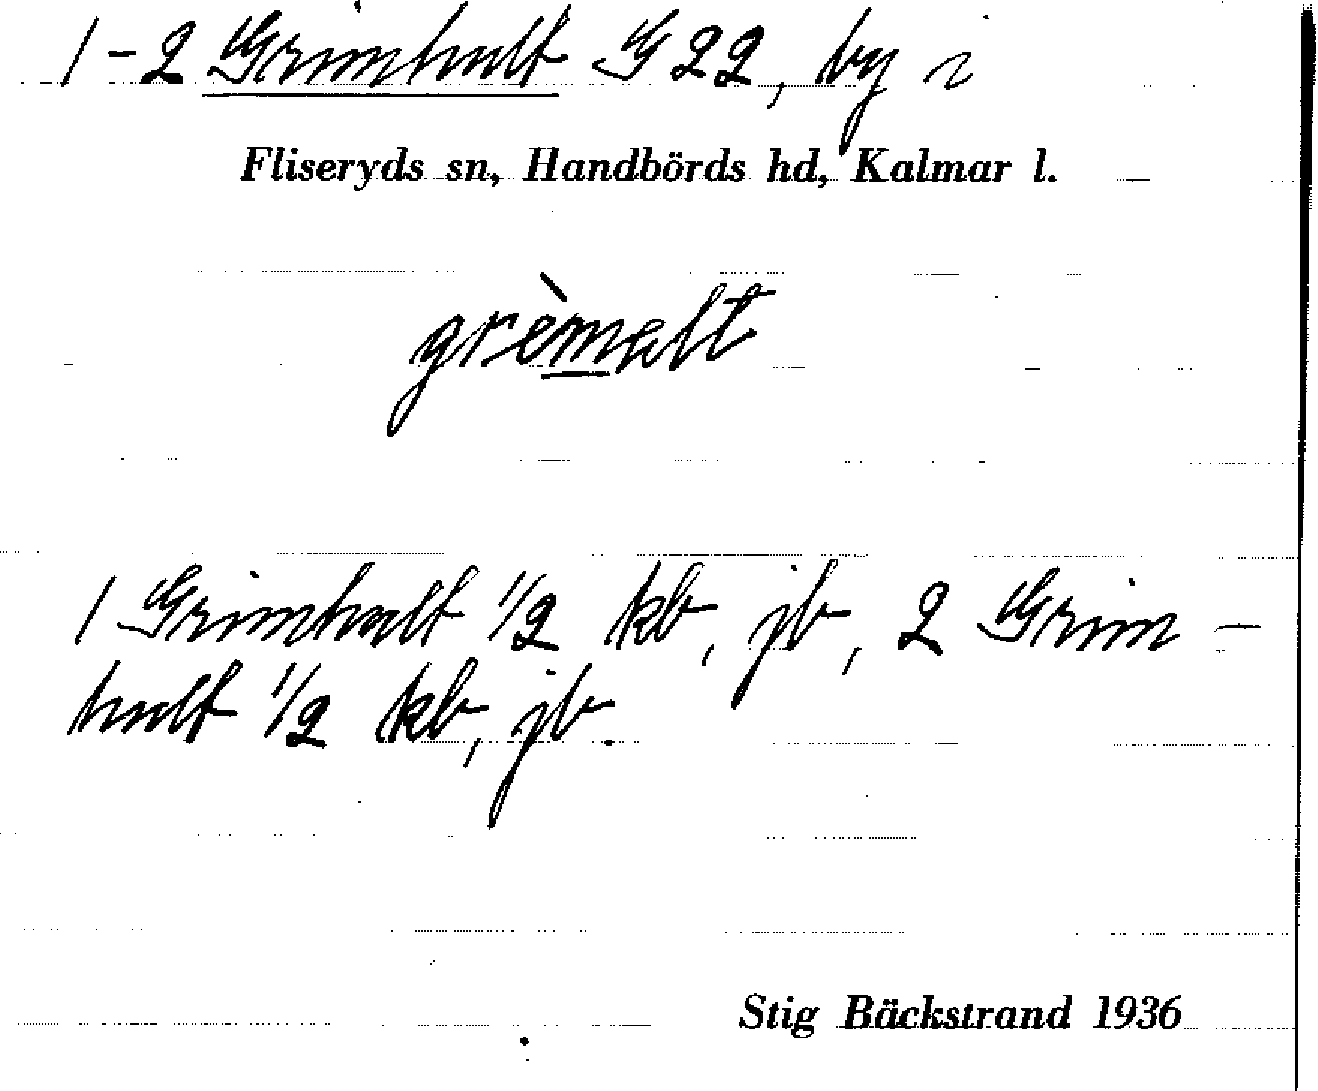 1-2 Grimhult G 22, by i
Fliseryds sn, Handbörds hd, Kalmar l.
grèməlt
1 Grimhult 1/2 kb, jb, 2 Grim-
hult 1/2 kb, jb.
Stig Bäckstrand 1936